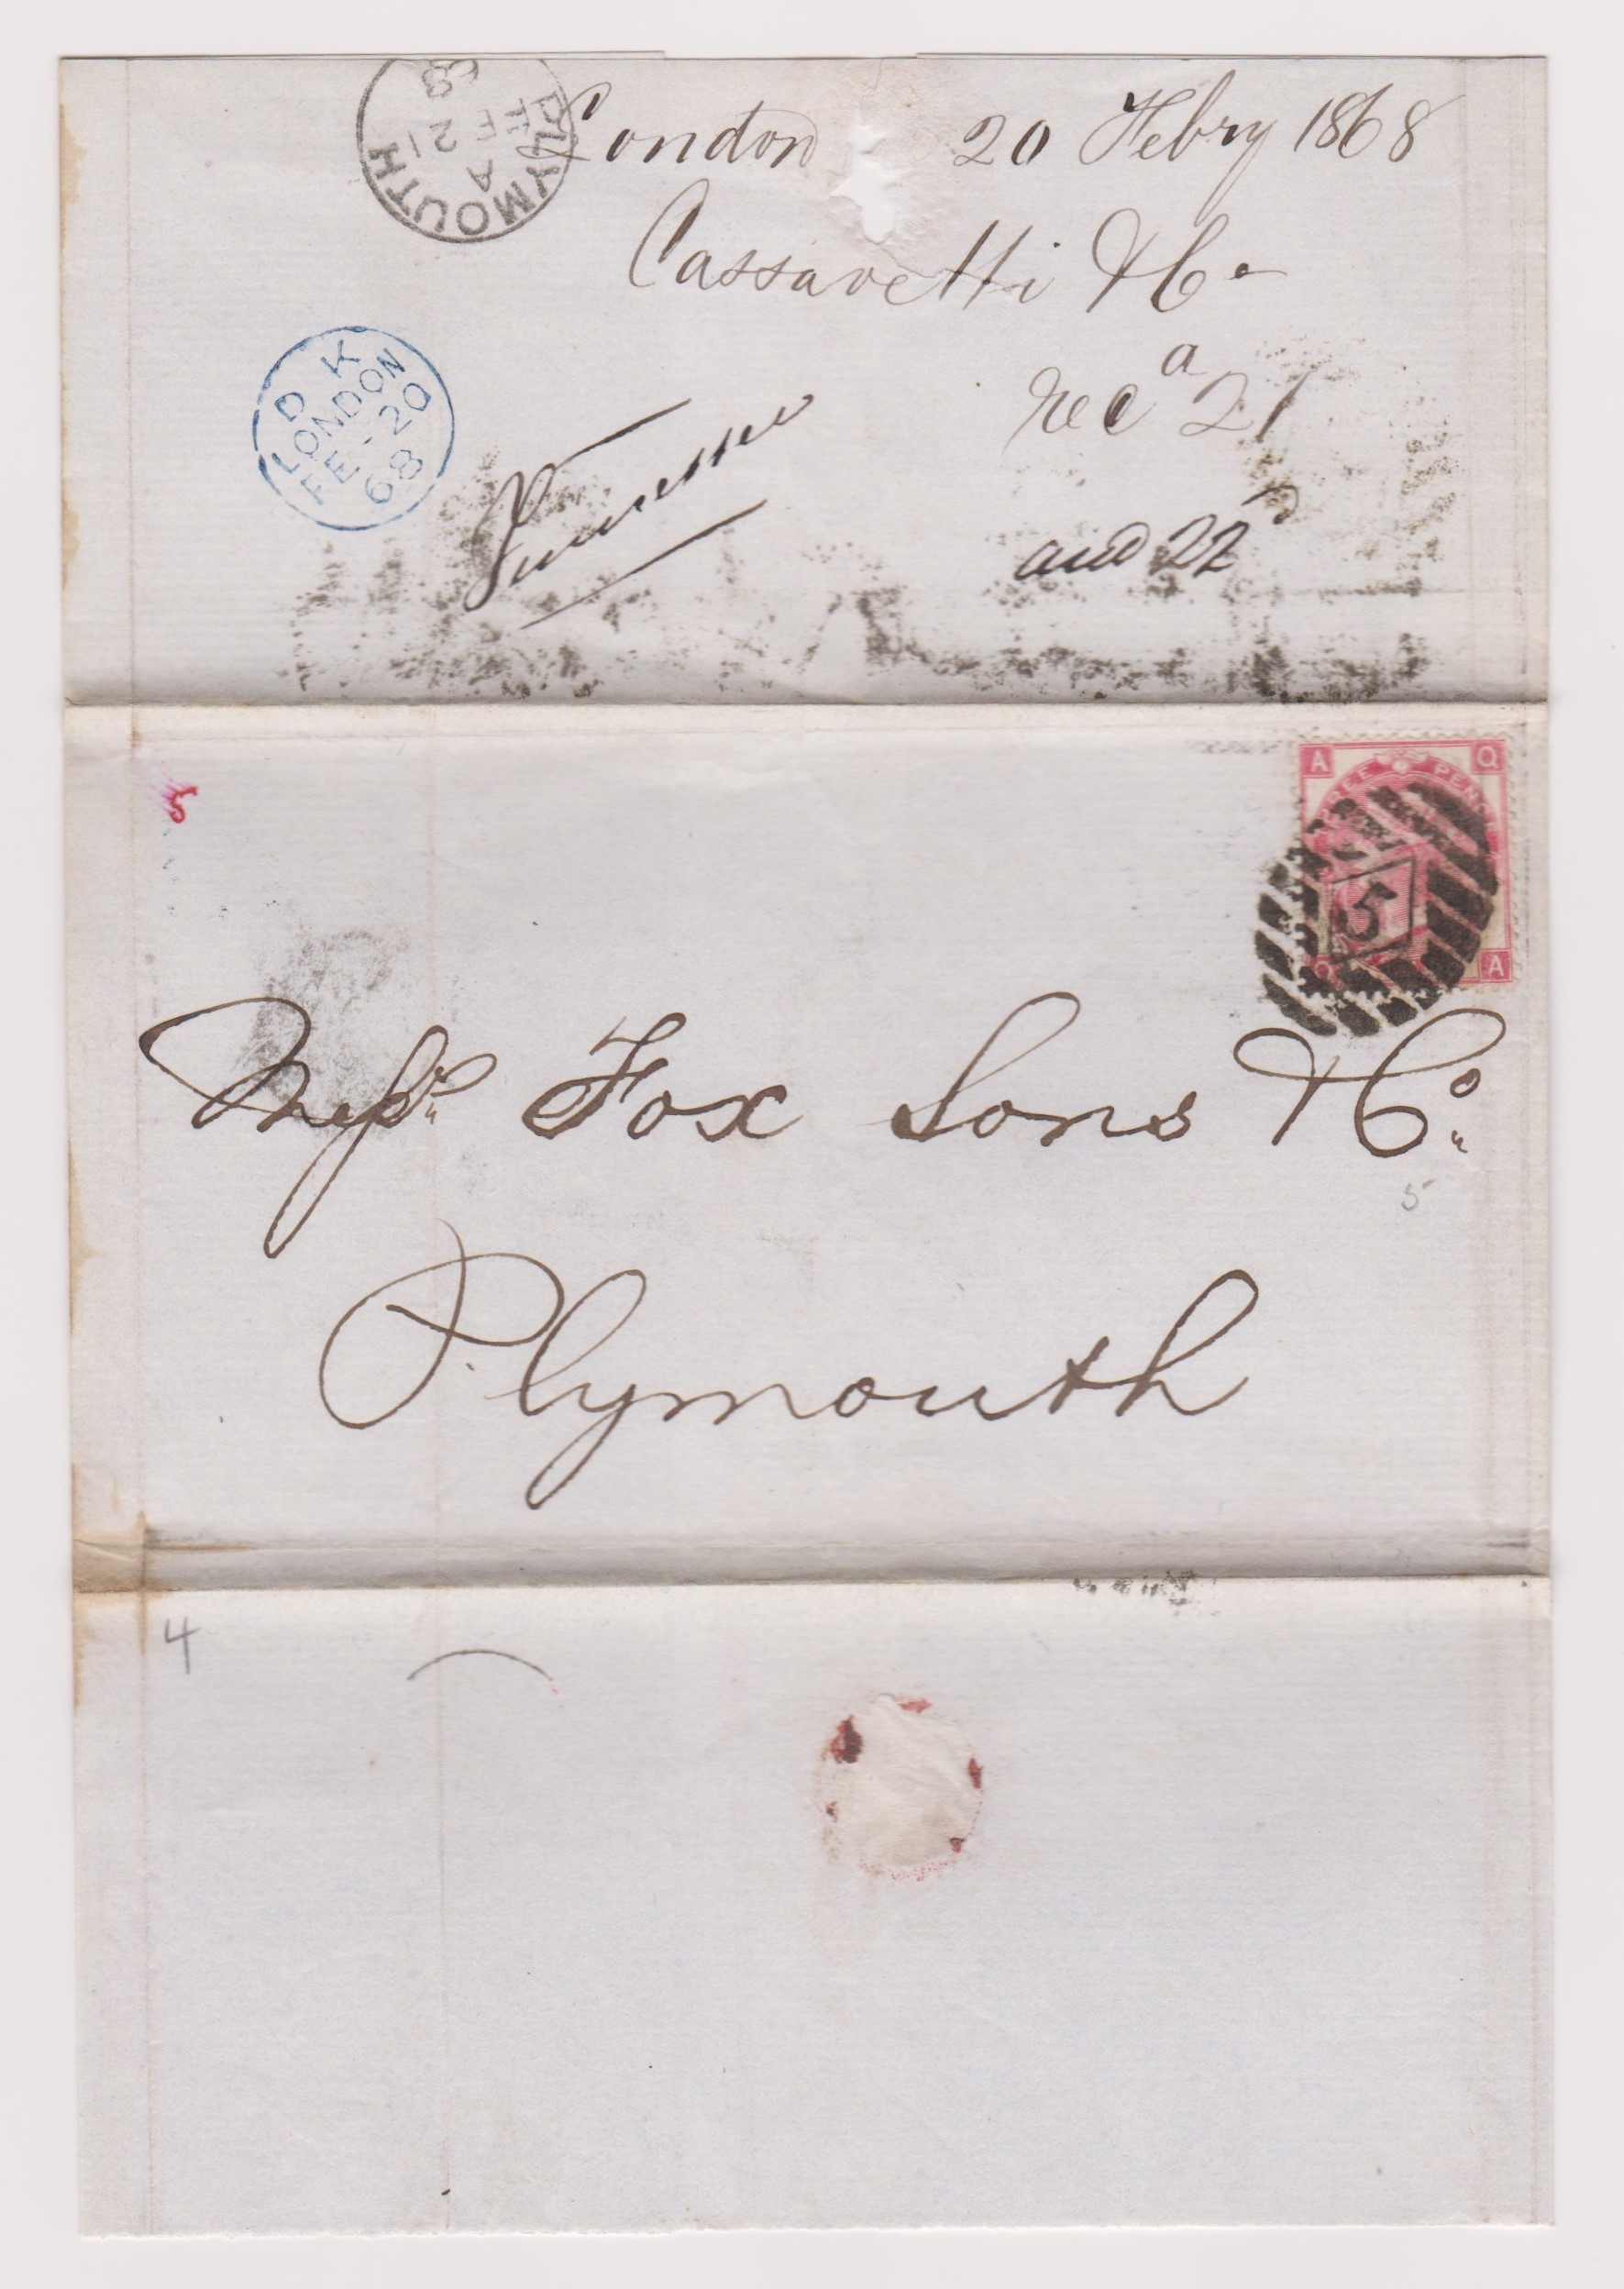 London 20 Febry 1868
PLYMOUTH
A
FE 21
68
Cassavetti & Co
D K
LONDON
FE - 20
68
recd 21
and 22d
5
A Q
THREE PENCE
5
Q A
Messrs Fox Sons & Co.
5
Plymouth
4